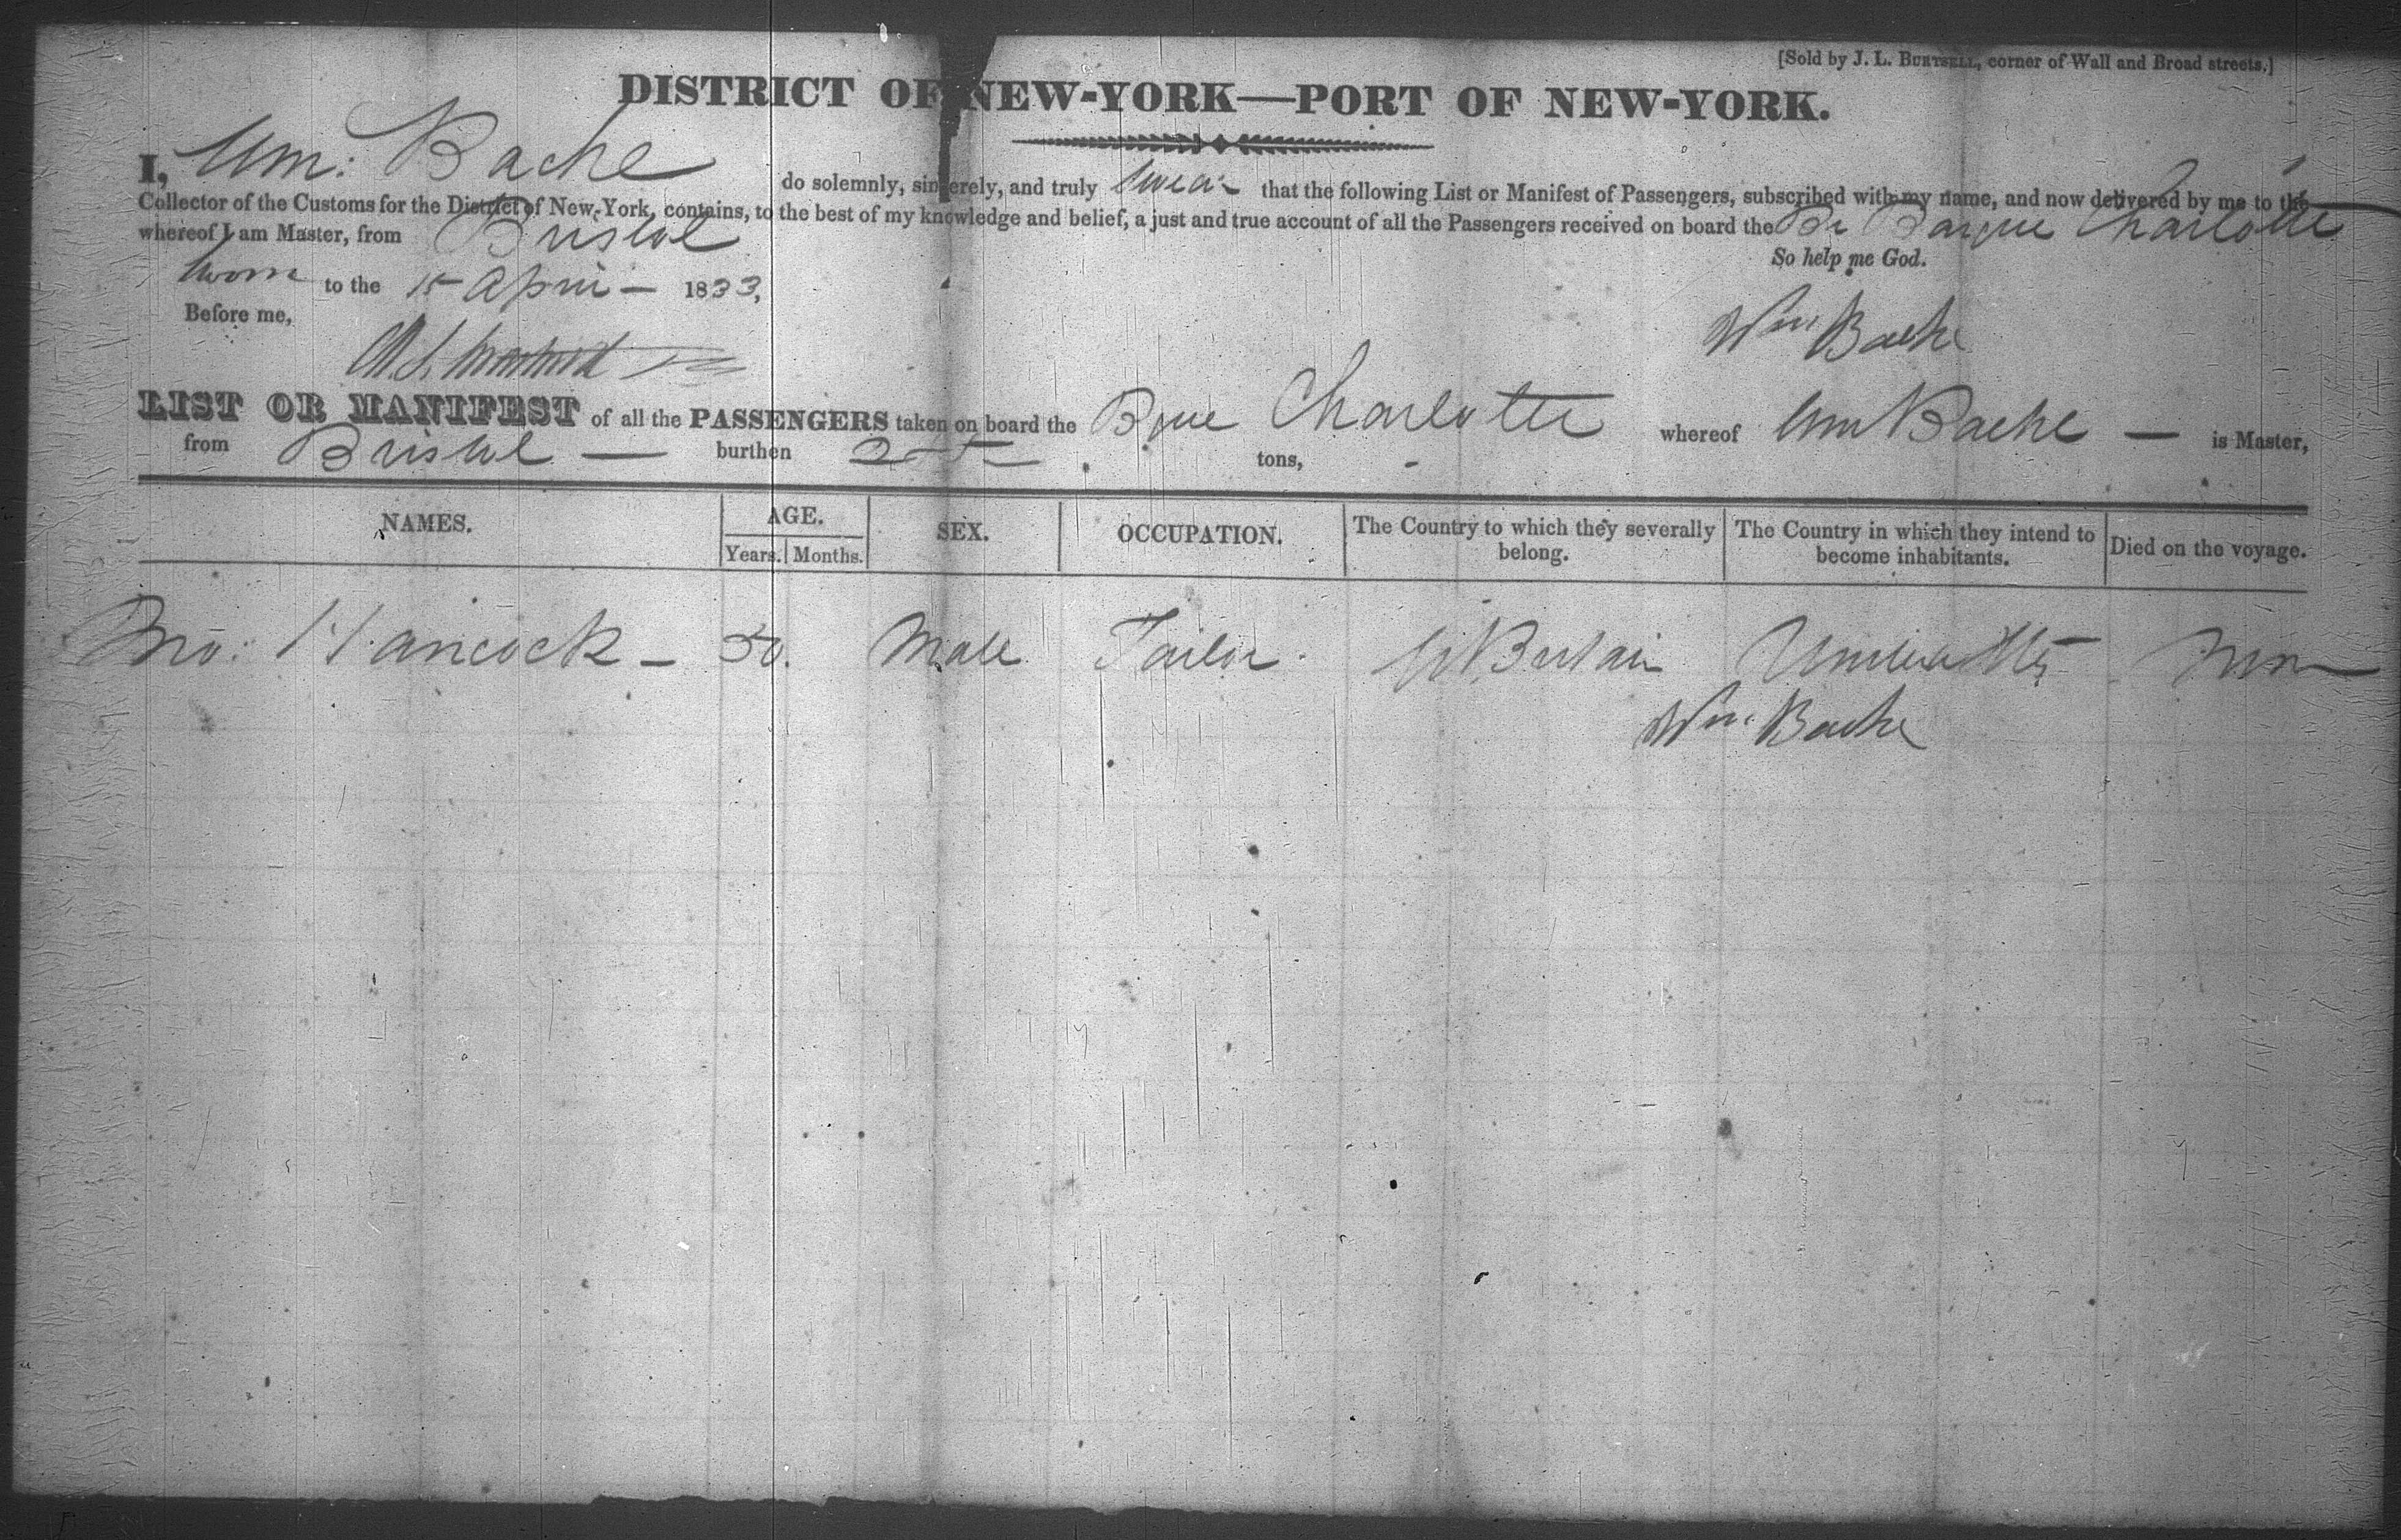 [Sold by J. L. BURTSELL, corner of Wall and Broad streets.]
DISTRICT OF NEW-YORK—PORT OF NEW-YORK.
I, Wm: Bache do solemnly, sincerely, and truly swear that the following List or Manifest of Passengers, subscribed with my name, and now delivered by me to the
Collector of the Customs for the District of New-York, contains, to the best of my knowledge and belief, a just and true account of all the Passengers received on board the Br Barque Charlotte
whereof I am Master, from Bristol
So help me God.
Sworn to the 15 April — 1833,
Before me,
Wm Bache
LIST OR MANIFEST of all the PASSENGERS taken on board the Bque Charlotte whereof Wm Bache — is Master,
from Bristol — burthen tons,
NAMES. AGE. SEX. OCCUPATION. The Country to which they severally belong. The Country in which they intend to become inhabitants. Died on the voyage.
Years. Months.
Jno: Hancock — 50. Male Tailor. G Britain United Sts None
Wm. Bache